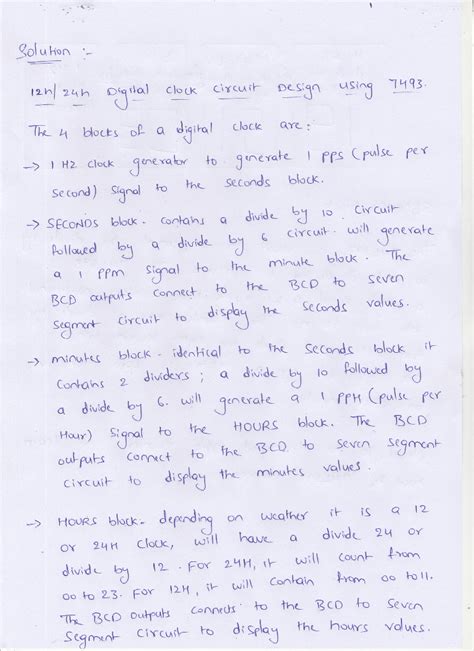 Solution :-
12h/24h Digital Clock Circuit Design using 7493.
The 4 blocks of a digital clock are:
→ 1 HZ clock generator to generate 1 pps (pulse per
second) signal to the seconds block.
→ SECONDS block - contains a divide by 10 circuit
followed by a divide by 6 circuit. will generate
a 1 PPM signal to the minute block. The
BCD outputs connect to the BCD to seven
segment circuit to display the seconds values.
→ minutes block - identical to the seconds block it
contains 2 dividers ; a divide by 10 followed by
a divide by 6. will generate a 1 PPH (pulse per
Hour) signal to the HOURS block. The BCD
outputs connect to the BCD to seven segment
circuit to display the minutes values.
→ HOURS block - depending on weather it is a 12
or 24H clock, will have a divide 24 or
divide by 12. For 24H, it will count from
00 to 23. For 12H, it will contain from 00 to 11.
The BCD outputs connects to the BCD to seven
segment circuit to display the hours values.